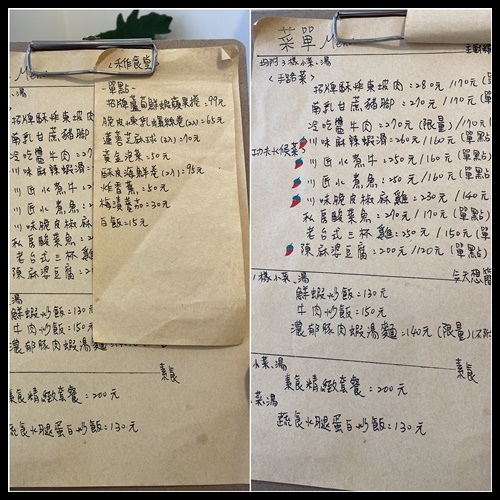 Me
湯
招牌酥炸東坡肉
南乳甘蔗豬腳
冷吃醬牛肉=27
川味麻辣蝦滑=2
川匠水煮牛=2
川匠水煮魚=2
川味脆皮椒麻
私房酸菜魚=
老台式三杯雞
陳麻婆豆腐=2
湯
鮮蝦炒飯=130
牛肉炒飯=150
濃郁豚肉蝦湯麵=
素食
素食精緻套餐=200元
蔬食火腿蛋白炒飯=130元
<禾作食堂
-單點-
招牌蘆筍鮮蝦蘋果捲=99元
脆皮煉乳爆絲卷(2入)=65元
蓮蓉芝麻球(2入)=70元
黃金泡菜=50元
酥皮海鮮卷(2入)=95元
炸香蕉=50元
梅漬蕃茄=30元
白飯=15元
菜單 Me
均附3樣小菜、湯
<手路菜>
招牌酥炸東坡肉=280元/170元(單
南乳甘蔗豬腳=270元/170元(單
冷吃醬牛肉=270元(限量)/170元(
川味麻辣蝦滑=260元/160元(單點
功夫水候菜>
川匠水煮牛=250元/160元(單點)
川匠水煮魚=250元/160元(單點)
川味脆皮椒麻雞=230元/140元
私房酸菜魚=270元/170元(單點)
老台式三杯雞=250元/150元(單
陳麻婆豆腐=200元/120元(單點)
樣小菜、湯
今天想簡
鮮蝦炒飯=130元
牛肉炒飯=150元
濃郁豚肉蝦湯麵=140元(限量)
小菜、湯
素食
素食精緻套餐=200元
菜、湯
蔬食火腿蛋白炒飯=130元